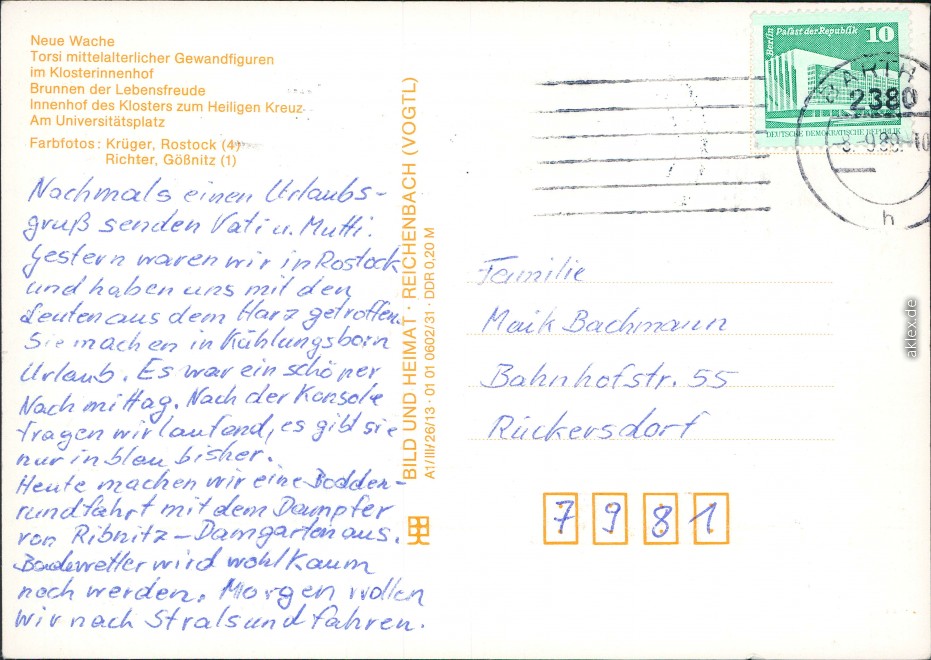 Neue Wache
Torsi mittelalterlicher Gewandfiguren
im Klosterinnenhof
Brunnen der Lebensfreude
Innenhof des Klosters zum Heiligen Kreuz
Am Universitätsplatz
Farbfotos: Krüger, Rostock (4)
Richter, Gößnitz (1)
Nachmals einen Urlaubs-
gruß senden Vati u. Mutti.
Gestern waren wir in Rostock
und haben uns mit den
Leuten aus dem Harz getroffen.
Sie machen in Kühlungsborn
Urlaub. Es war ein schöner
Nachmittag. Nach der Konsole
fragen wir laufend, es gibt sie
nur in blau bisher.
Heute machen wir eine Bodden-
rundfahrt mit dem Dampfer
von Ribnitz-Damgarten aus.
Badewetter wird wohl kaum
noch werden. Morgen wollen
wir nach Stralsund fahren.
BILD UND HEIMAT · REICHENBACH (VOGTL)
A1/III/26/13 · 01 01 0602/31 · DDR 0,20 M
Berlin Palast der Republik 10
DEUTSCHE DEMOKRATISCHE REPUBLIK
BARTH
2380
h
Familie
Maik Bachmann
Bahnhofstr. 55
Rückersdorf
7981
aklex.de